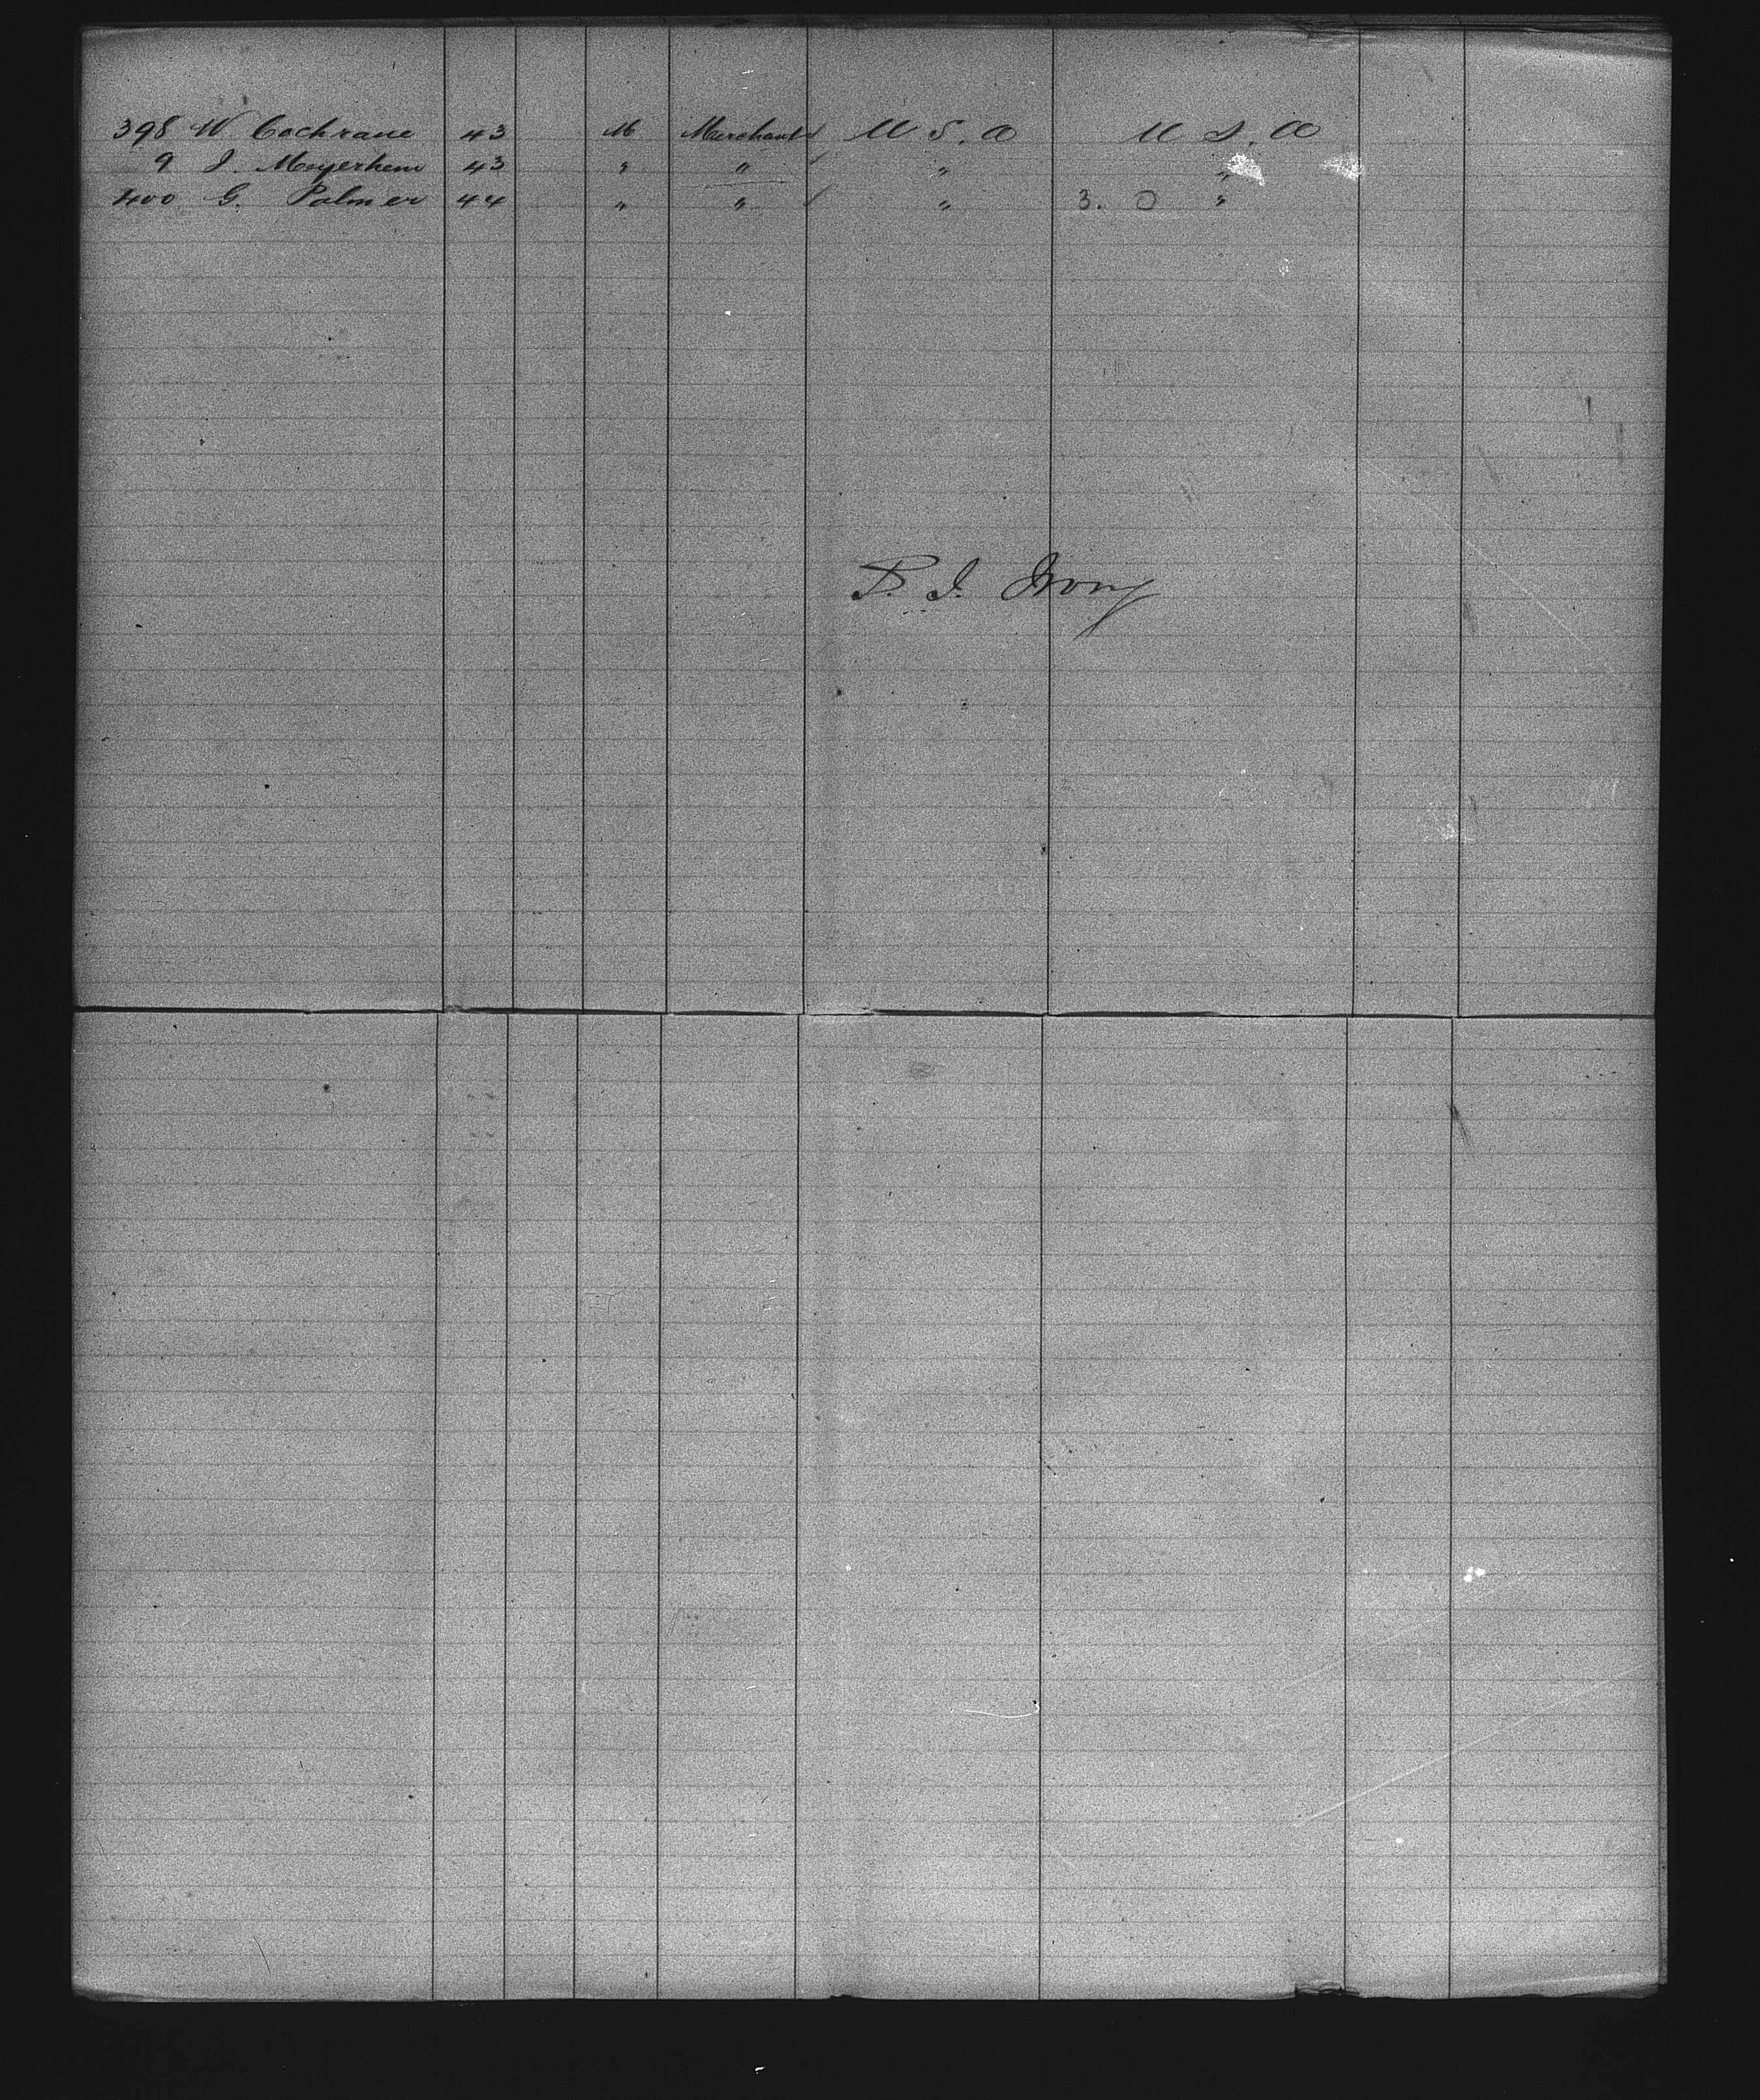 398 W. Cochrane 43 M Merchant U S. A U S. A
9 J. Meyerhem 43 " " " "
400 G. Palmer 44 " " " 3. 0 "
P. J. Irving